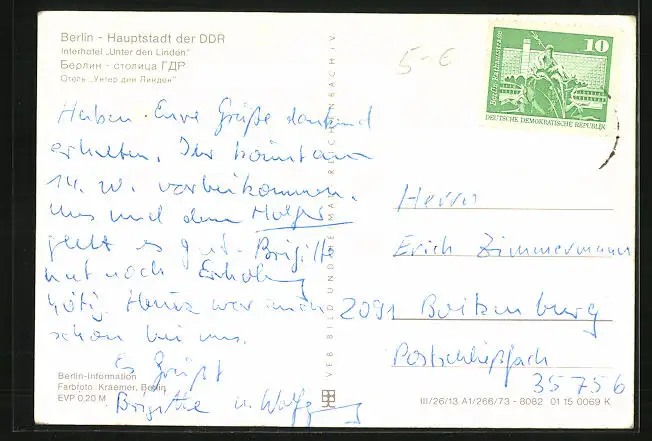 Berlin - Hauptstadt der DDR
Interhotel „Unter den Linden"
Берлин - столица ГДР
Отель „Унтер ден Линден"
Haben Eure Grüße dankend
erhalten. Ihr könnt am
14. vorbeikommen.
Uns und dem Holger
geht es gut. Brigitte
hat noch Erholung
nötig. Heinz war auch
schon bei uns.
Es Grüßt
Brigitte u. Wolfgang
Berlin-Information
Farbfoto: Kraemer, Berlin
EVP 0,20 M
VEB BILD UND HEIMAT REICHENBACH i.V.
5-6
10
Berlin, Rathausstraße
DEUTSCHE DEMOKRATISCHE REPUBLIK
Herrn
Erich Zimmermann
2091 Boitzenburg
Postschließfach
35756
III/26/13 A1/266/73 - 8082 01 15 0069 K